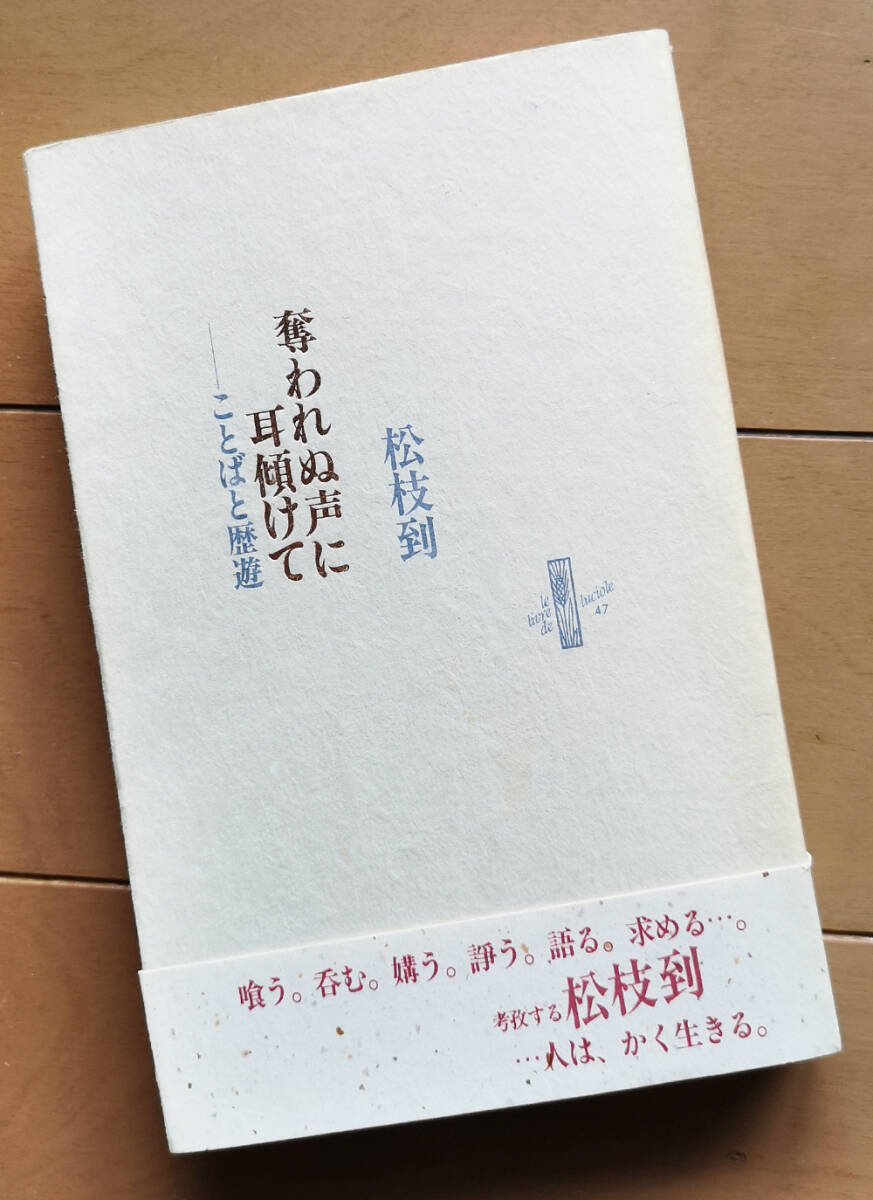 松枝到
奪われぬ声に
耳傾けて
――ことばと歴遊
le
livre
de
luciole
47
喰う。呑む。媾う。諍う。語る。求める…。
考孜する 松枝到
…人は、かく生きる。